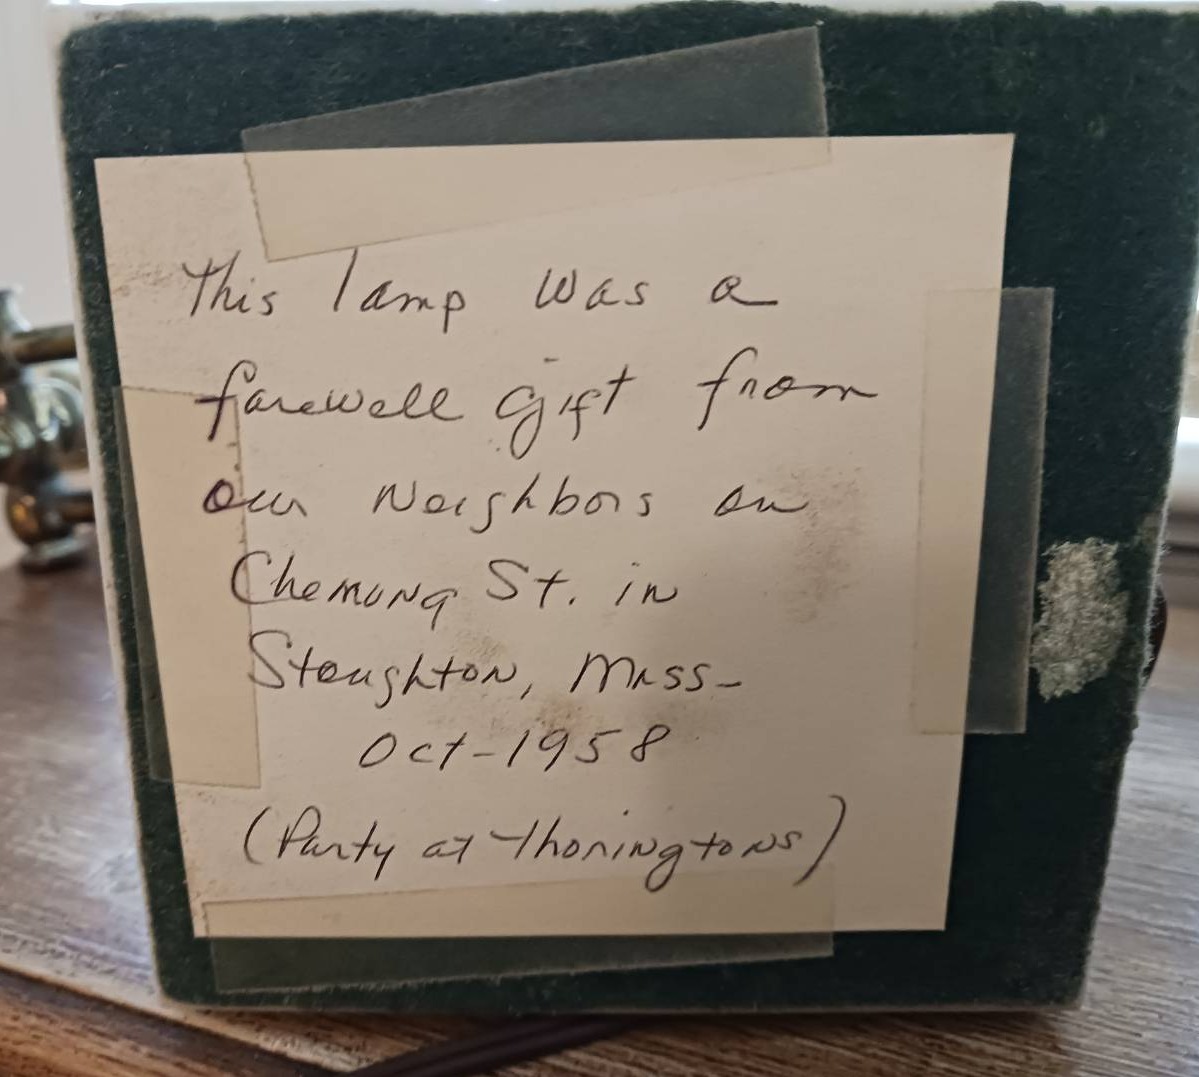 This lamp was a
farewell gift from
our Neighbors on
Chemung St. in
Stoughton, Mass-
Oct-1958
(Party at Thoringtons)